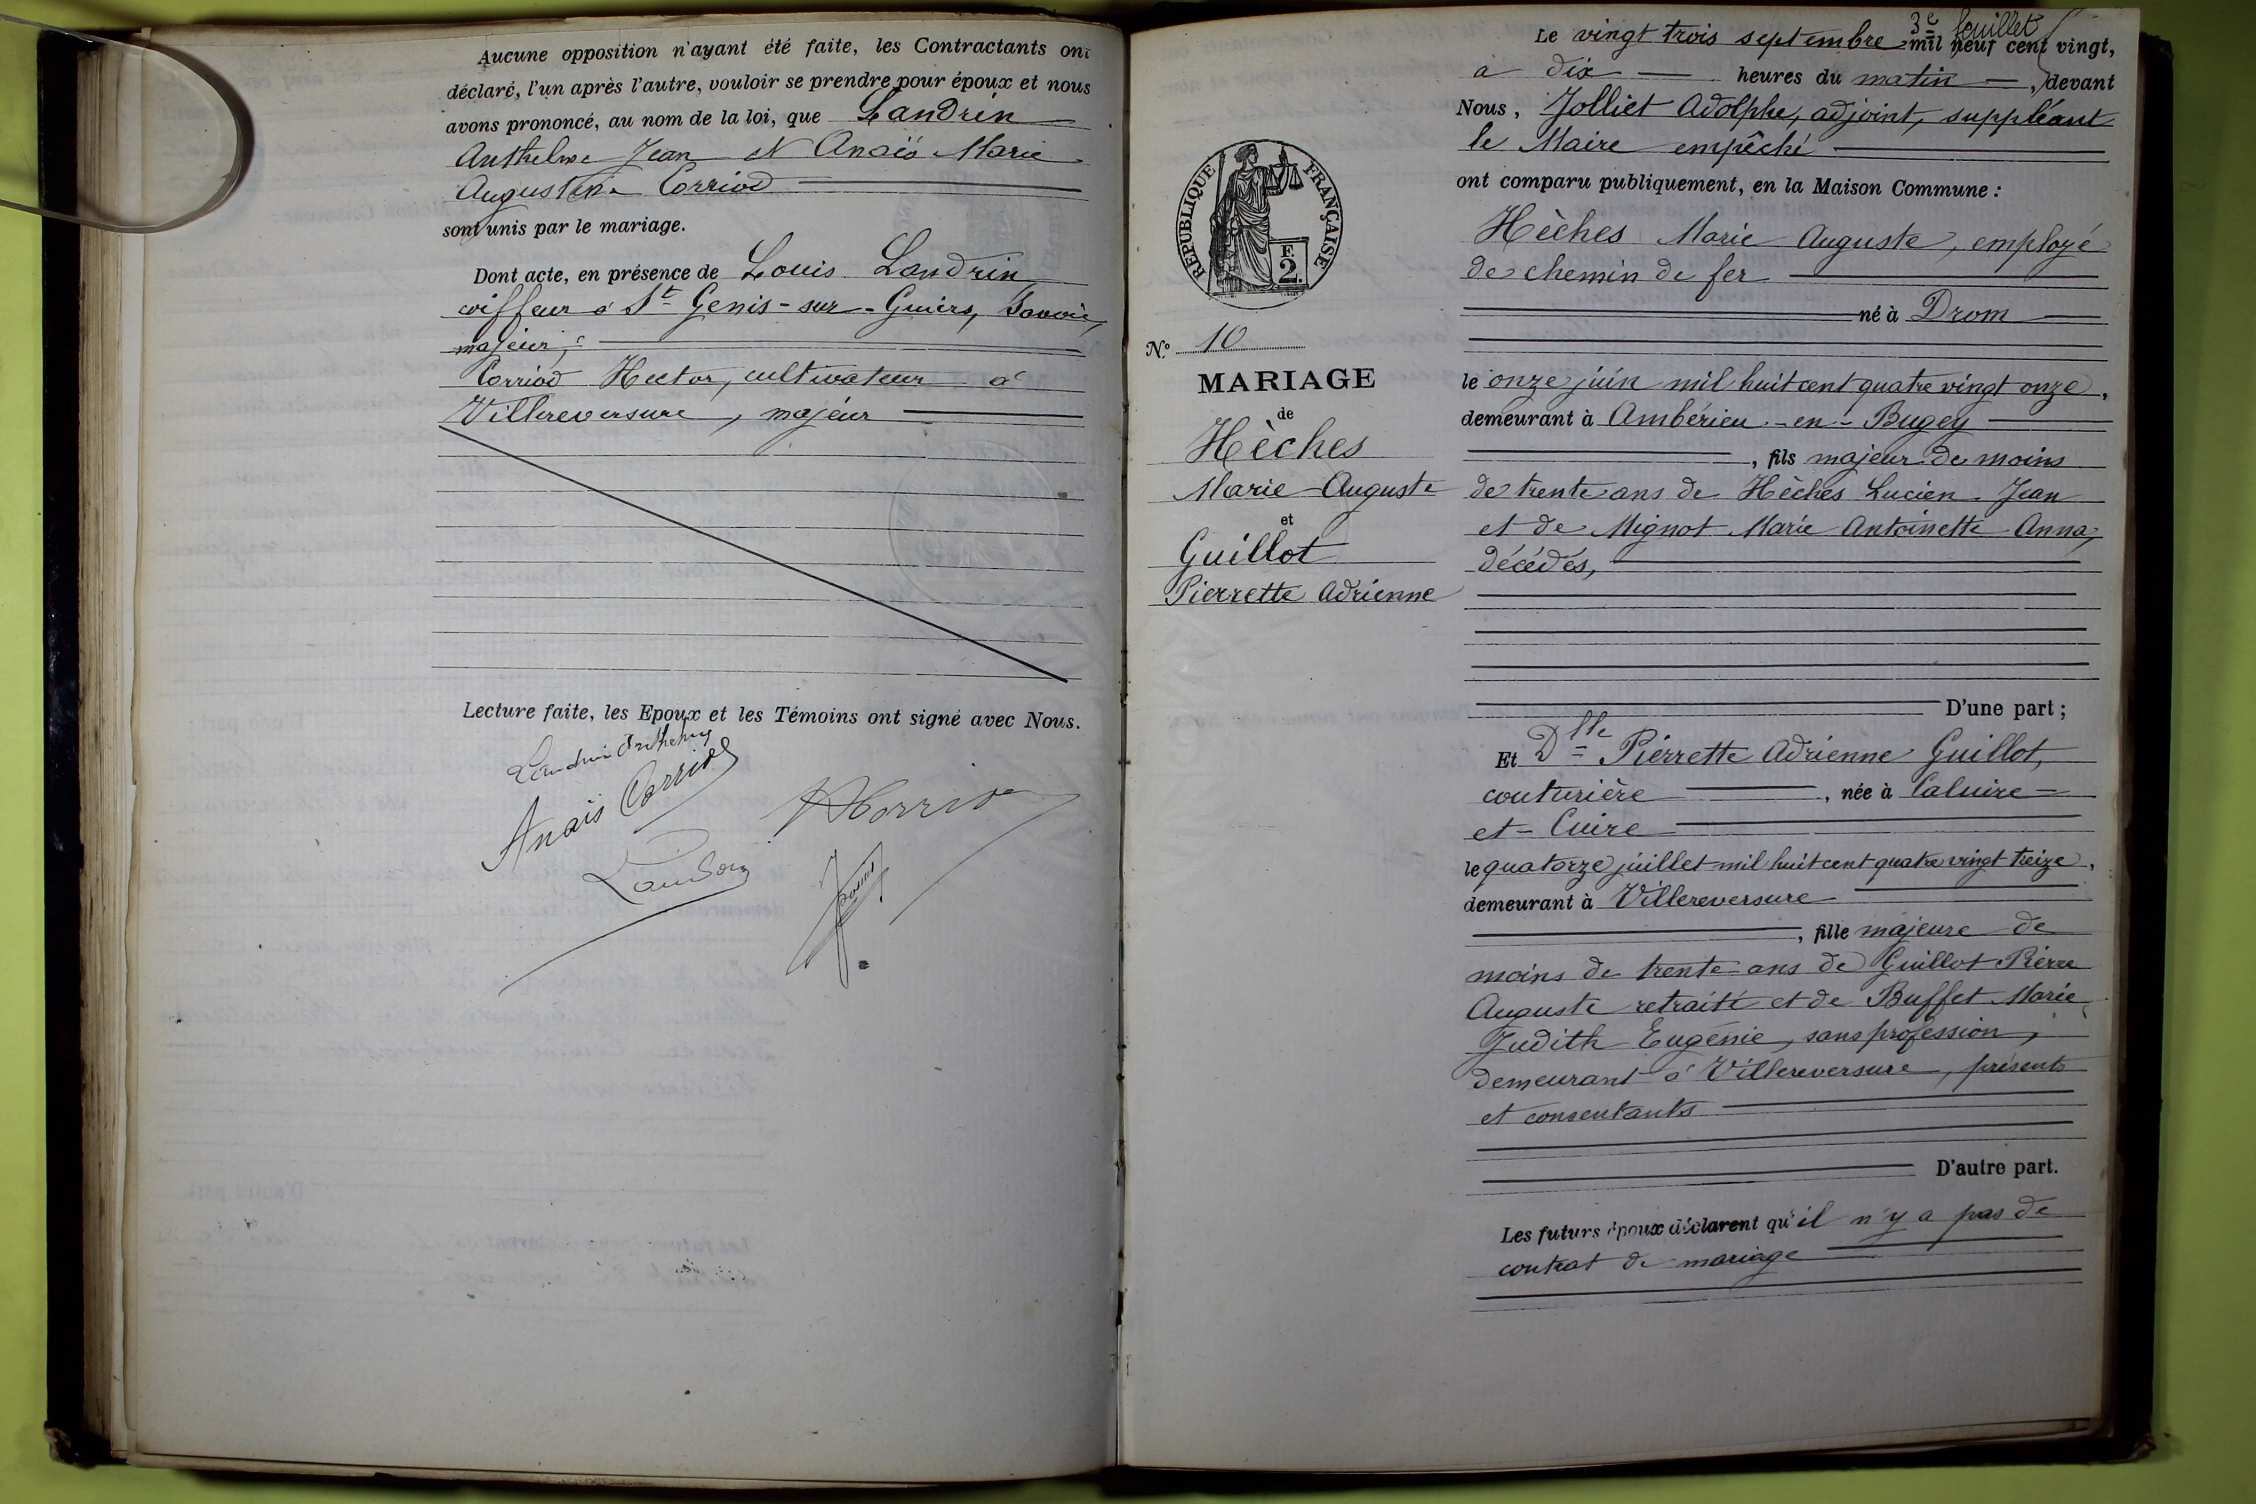 Aucune opposition n'ayant été faite, les Contractants ont
déclaré, l'un après l'autre, vouloir se prendre pour époux et nous
avons prononcé, au nom de la loi, que Landrin
Anthelme Jean et Anaïs Marie
Augustine Corriod
sont unis par le mariage.
Dont acte, en présence de Louis Landrin
coiffeur à St Genis-sur-Guiers, Savoie,
majeur;
Corriod Hector, cultivateur à
Villereversure, majeur
Lecture faite, les Epoux et les Témoins ont signé avec Nous.
Landrin Anthelme
Anaïs Corriod
HCorriod
Landrin
3e feuillet
Le vingt trois septembre mil neuf cent vingt,
à dix heures du matin, devant
Nous, Jolliet Adolphe, adjoint, suppléant
le Maire empêché
ont comparu publiquement, en la Maison Commune :
RÉPUBLIQUE FRANÇAISE
F
2
No 10
MARIAGE
de
Hèches
Marie Auguste
et
Guillot
Pierrette Adrienne
Hèches Marie Auguste, employé
de chemin de fer
né à Drom
le onze juin mil huit cent quatre vingt onze,
demeurant à Ambérieu-en-Bugey
, fils majeur de moins
de trente ans de Hèches Lucien Jean
et de Mignot Marie Antoinette Anna,
décédés,
D'une part ;
Et Dlle Pierrette Adrienne Guillot,
couturière, née à Caluire-
et-Cuire
le quatorze juillet mil huit cent quatre vingt treize,
demeurant à Villereversure
, fille majeure de
moins de trente ans de Guillot Pierre
Auguste retraité et de Buffet Marie
Judith Eugénie, sans profession,
demeurant à Villereversure, présents
et consentants
D'autre part.
Les futurs époux déclarent qu'il n'y a pas de
contrat de mariage